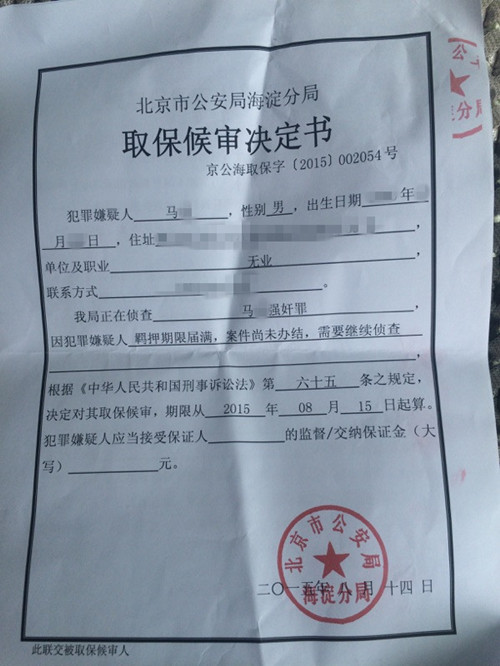 北京市公安局海淀分局
取保候审决定书
京公海取保字〔2015〕002054号
犯罪嫌疑人 马 ，性别 男 ，出生日期 年
月 日，住址 ，
单位及职业 无业
联系方式 。
我局正在侦查 马 强奸罪
因犯罪嫌疑人 羁押期限届满，案件尚未办结，需要继续侦查
，
根据《中华人民共和国刑事诉讼法》第 六十五 条之规定，
决定对其取保候审，期限从 2015 年 08 月 15 日起算。
犯罪嫌疑人应当接受保证人 的监督/交纳保证金（大
写） 元。
北京市公安局
海淀分局
二〇一五年 八 月 十四 日
此联交被取保候审人